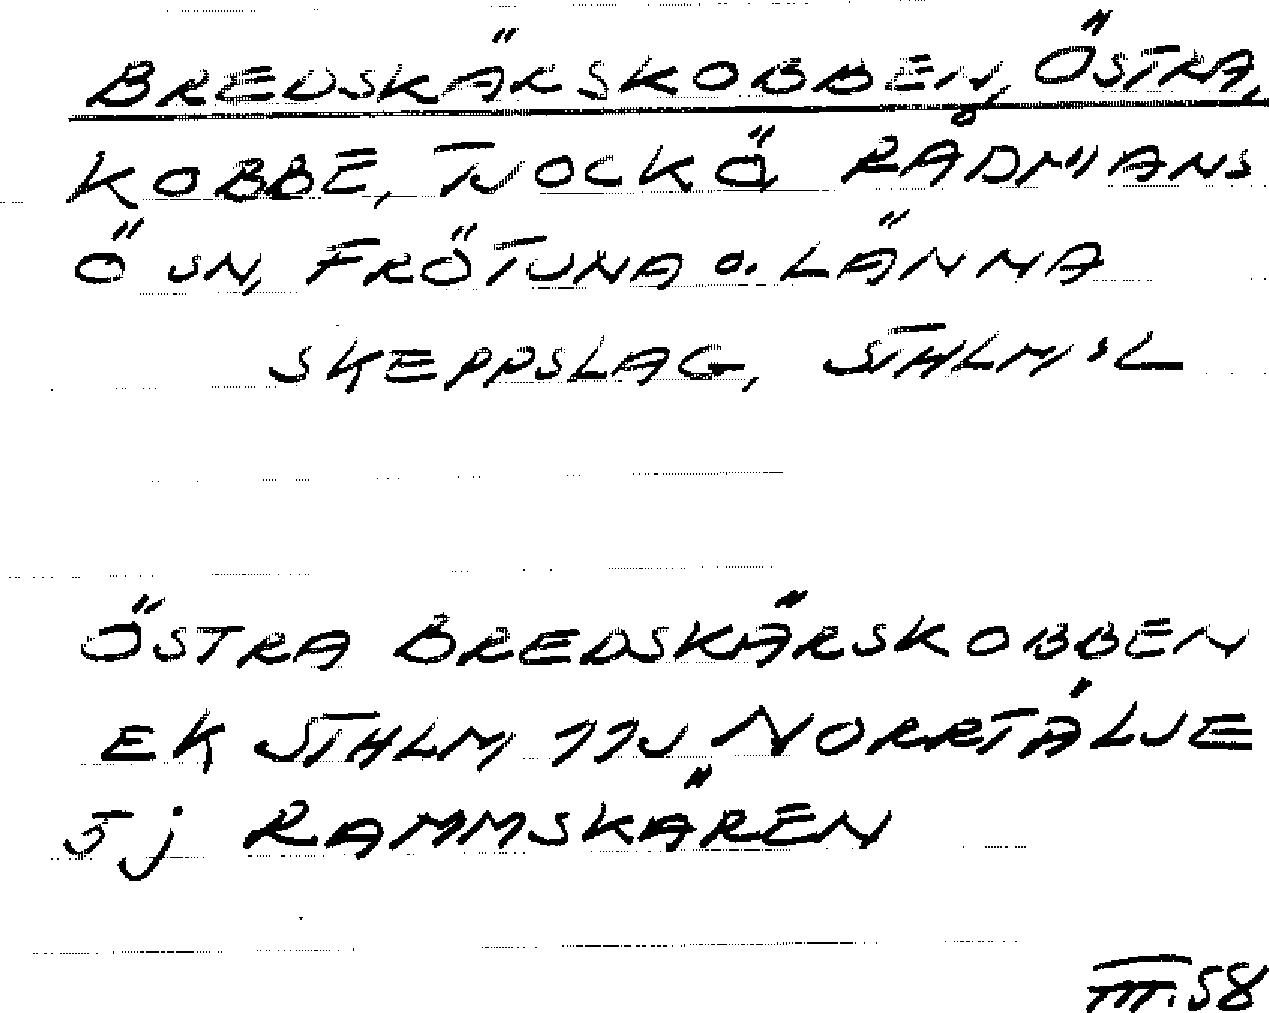 BREDSKÄRSKOBBEN, ÖSTRA,
KOBBE, TJOCKÖ RÅDMANS
Ö SN, FRÖTUNA o. LÄNNA
SKEPPSLAG, STHLM:S L
ÖSTRA BREDSKÄRSKOBBEN
EK STHLM 11J NORRTÄLJE
5j RAMMSKÄREN
III.58